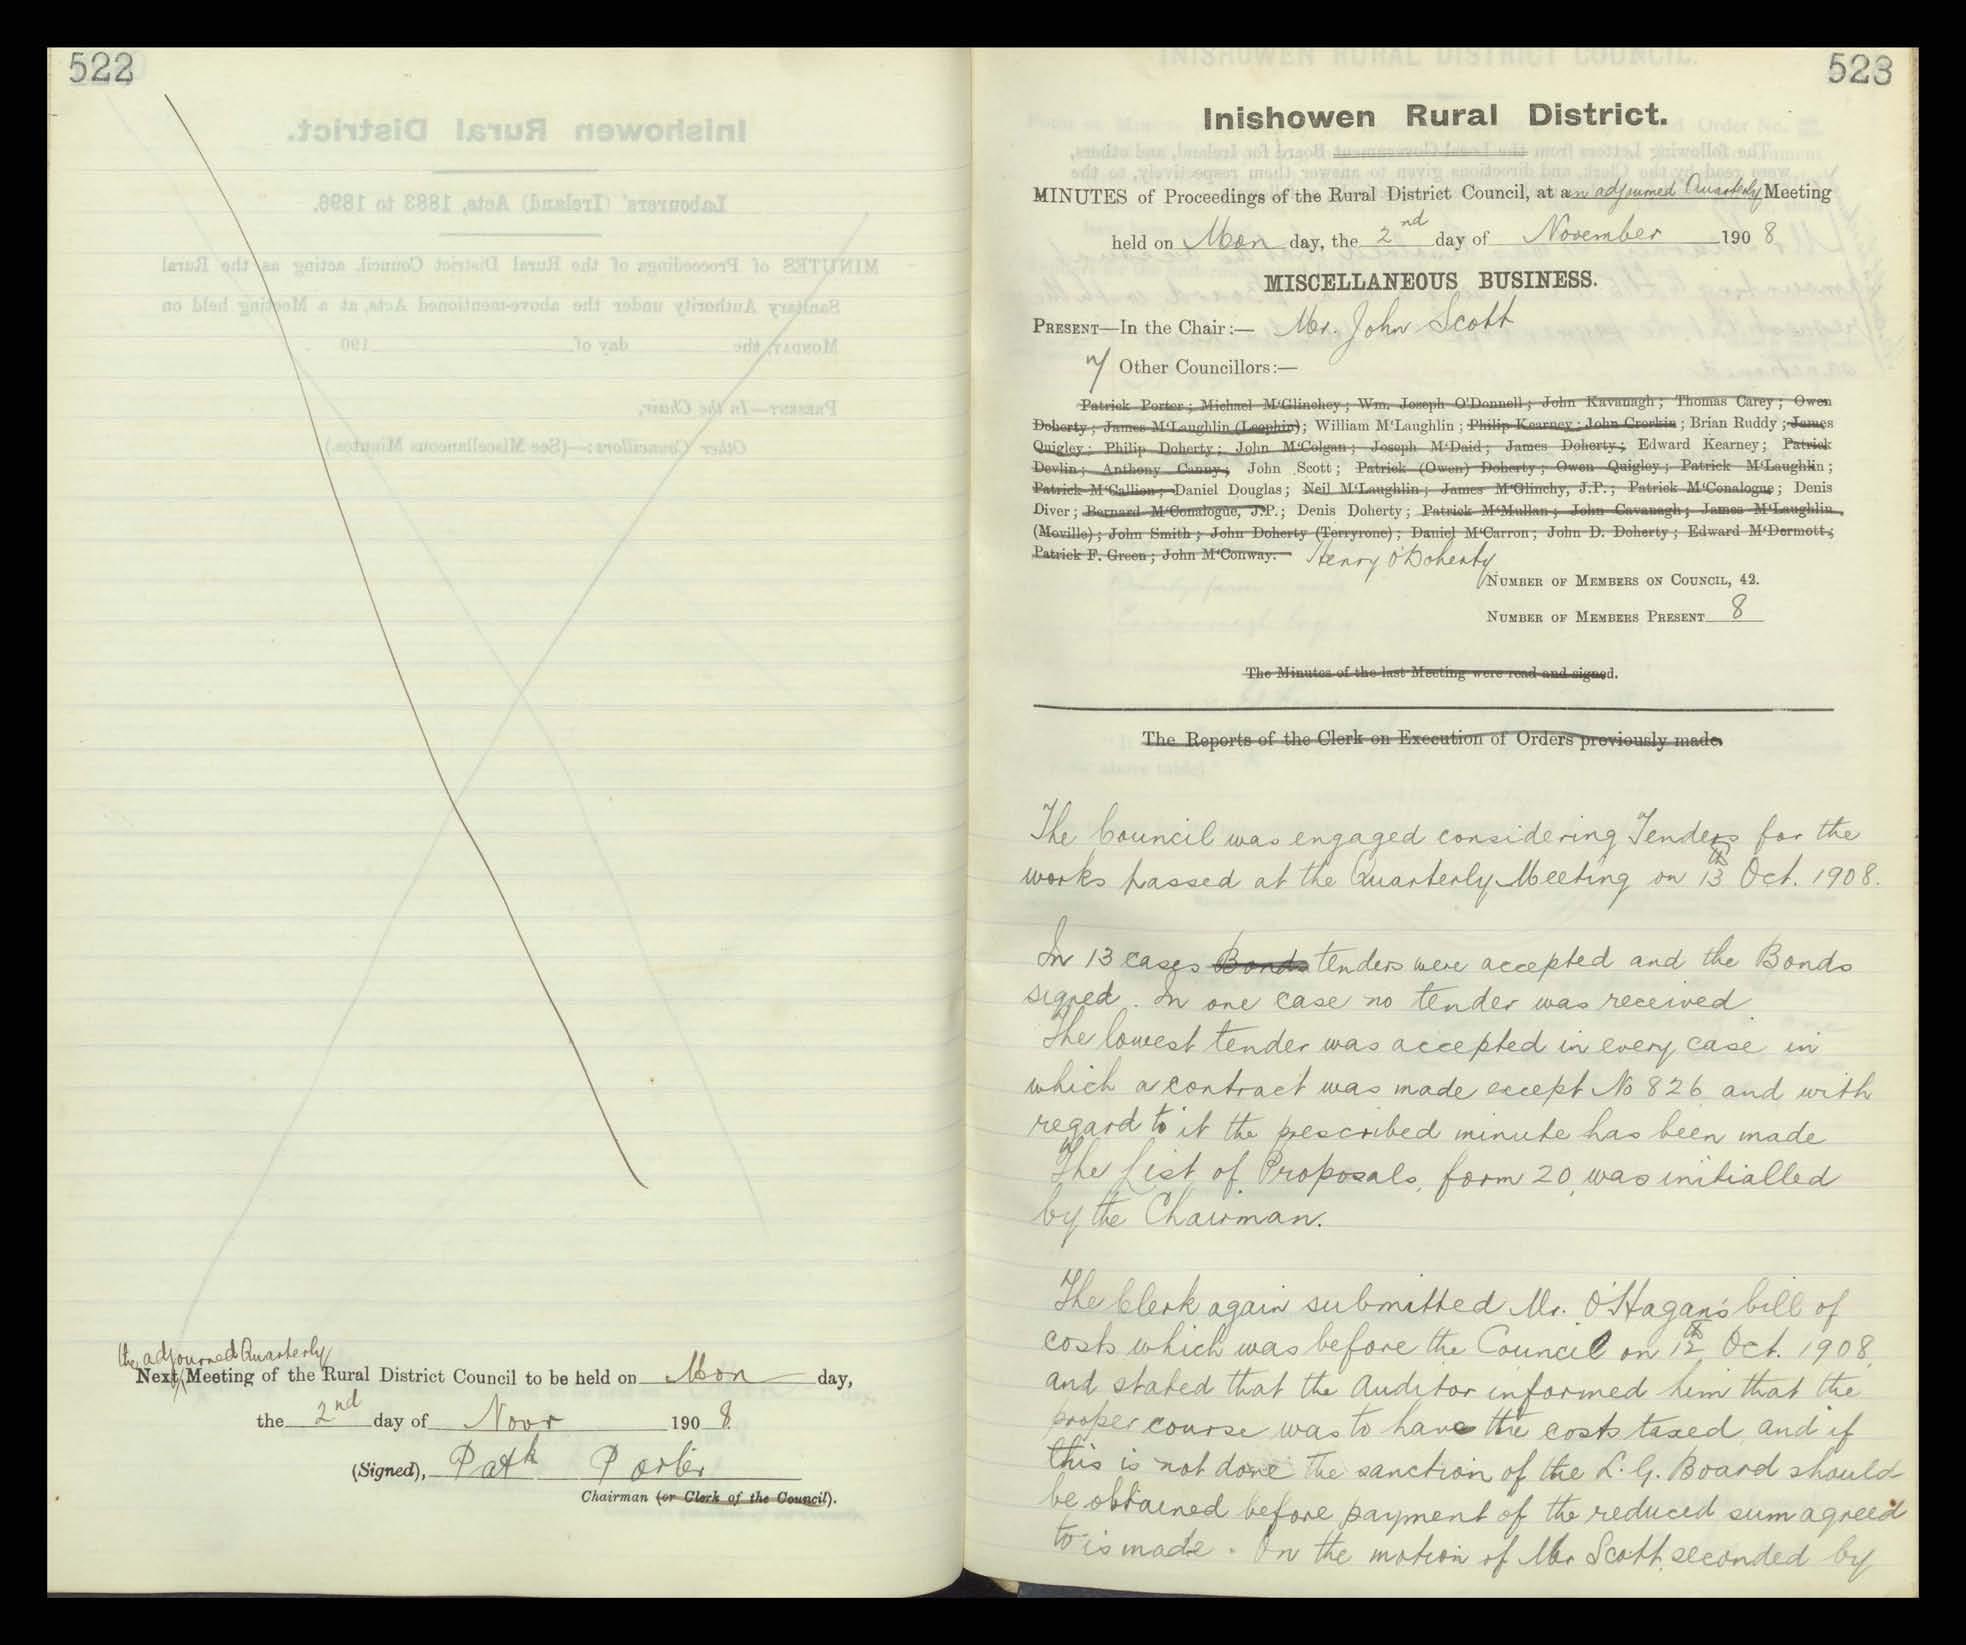 522
the adjourned Quarterly
Next Meeting of the Rural District Council to be held on Mon day,
the 2nd day of Novr 1908
(Signed), Patk Porter
Chairman (or Clerk of the Council).
523
Inishowen Rural District.
MINUTES of Proceedings of the Rural District Council, at an adjourned Quarterly Meeting
held on Mon day, the 2nd day of November 1908
MISCELLANEOUS BUSINESS.
PRESENT—In the Chair:— Mr. John Scott
7 Other Councillors:—
Patrick Porter; Michael M'Glinchey; Wm. Joseph O'Donnell; John Kavanagh; Thomas Carey; Owen
Doherty; James M'Laughlin (Leophin); William M'Laughlin; Philip Kearney; John Crorkin; Brian Ruddy; James
Quigley; Philip Doherty; John M'Colgan; Joseph M'Daid; James Doherty; Edward Kearney; Patrick
Devlin; Anthony Canny; John Scott; Patrick (Owen) Doherty; Owen Quigley; Patrick M'Laughlin;
Patrick M'Callion; Daniel Douglas; Neil M'Laughlin; James M'Glinchy, J.P.; Patrick M'Conalogue; Denis
Diver; Bernard M'Conalogue, J.P.; Denis Doherty; Patrick M'Mullan; John Cavanagh; James M'Laughlin
(Moville); John Smith; John Doherty (Terryrone); Daniel M'Carron; John D. Doherty; Edward M'Dermott;
Patrick F. Green; John M'Conway. Henry O'Doherty
NUMBER OF MEMBERS ON COUNCIL, 42.
NUMBER OF MEMBERS PRESENT 8
The Minutes of the last Meeting were read and signed.
The Reports of the Clerk on Execution of Orders previously made.
The Council was engaged considering Tenders for the
works passed at the Quarterly Meeting on 13th Oct. 1908.
In 13 cases Bonds tenders were accepted and the Bonds
signed. In one case no tender was received.
The lowest tender was accepted in every case in
which a contract was made except No 826 and with
regard to it the prescribed minute has been made
The List of Proposals, form 20, was initialled
by the Chairman.
The Clerk again submitted Mr. O'Hagan's bill of
costs which was before the Council on 12th Oct. 1908,
and stated that the Auditor informed him that the
proper course was to have the costs taxed and if
this is not done the sanction of the L. G. Board should
be obtained before payment of the reduced sum agreed
to is made. On the motion of Mr Scott, seconded by